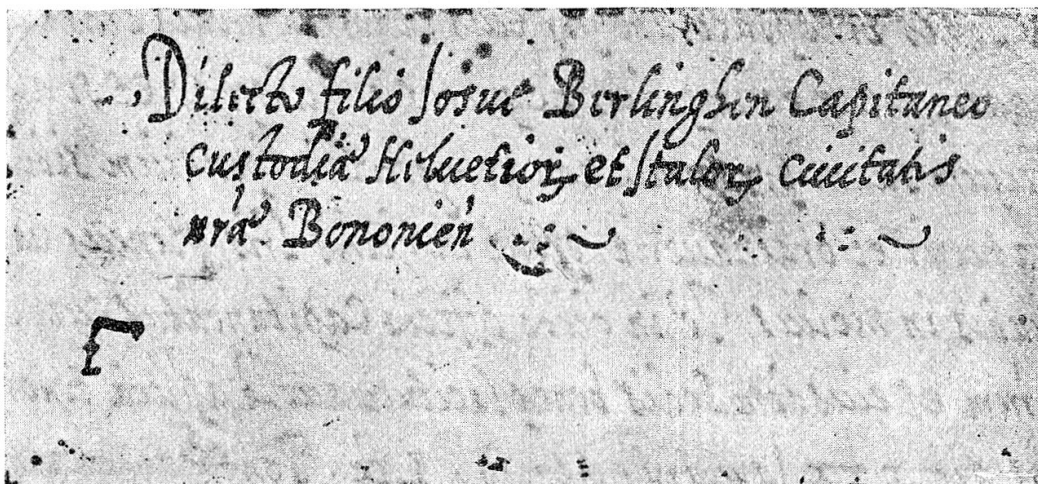 Dilecto filio Josue Berlinghen Capitaneo
Custodiæ Heluetior, et Italor, ciuitatis
nrãe Bononień